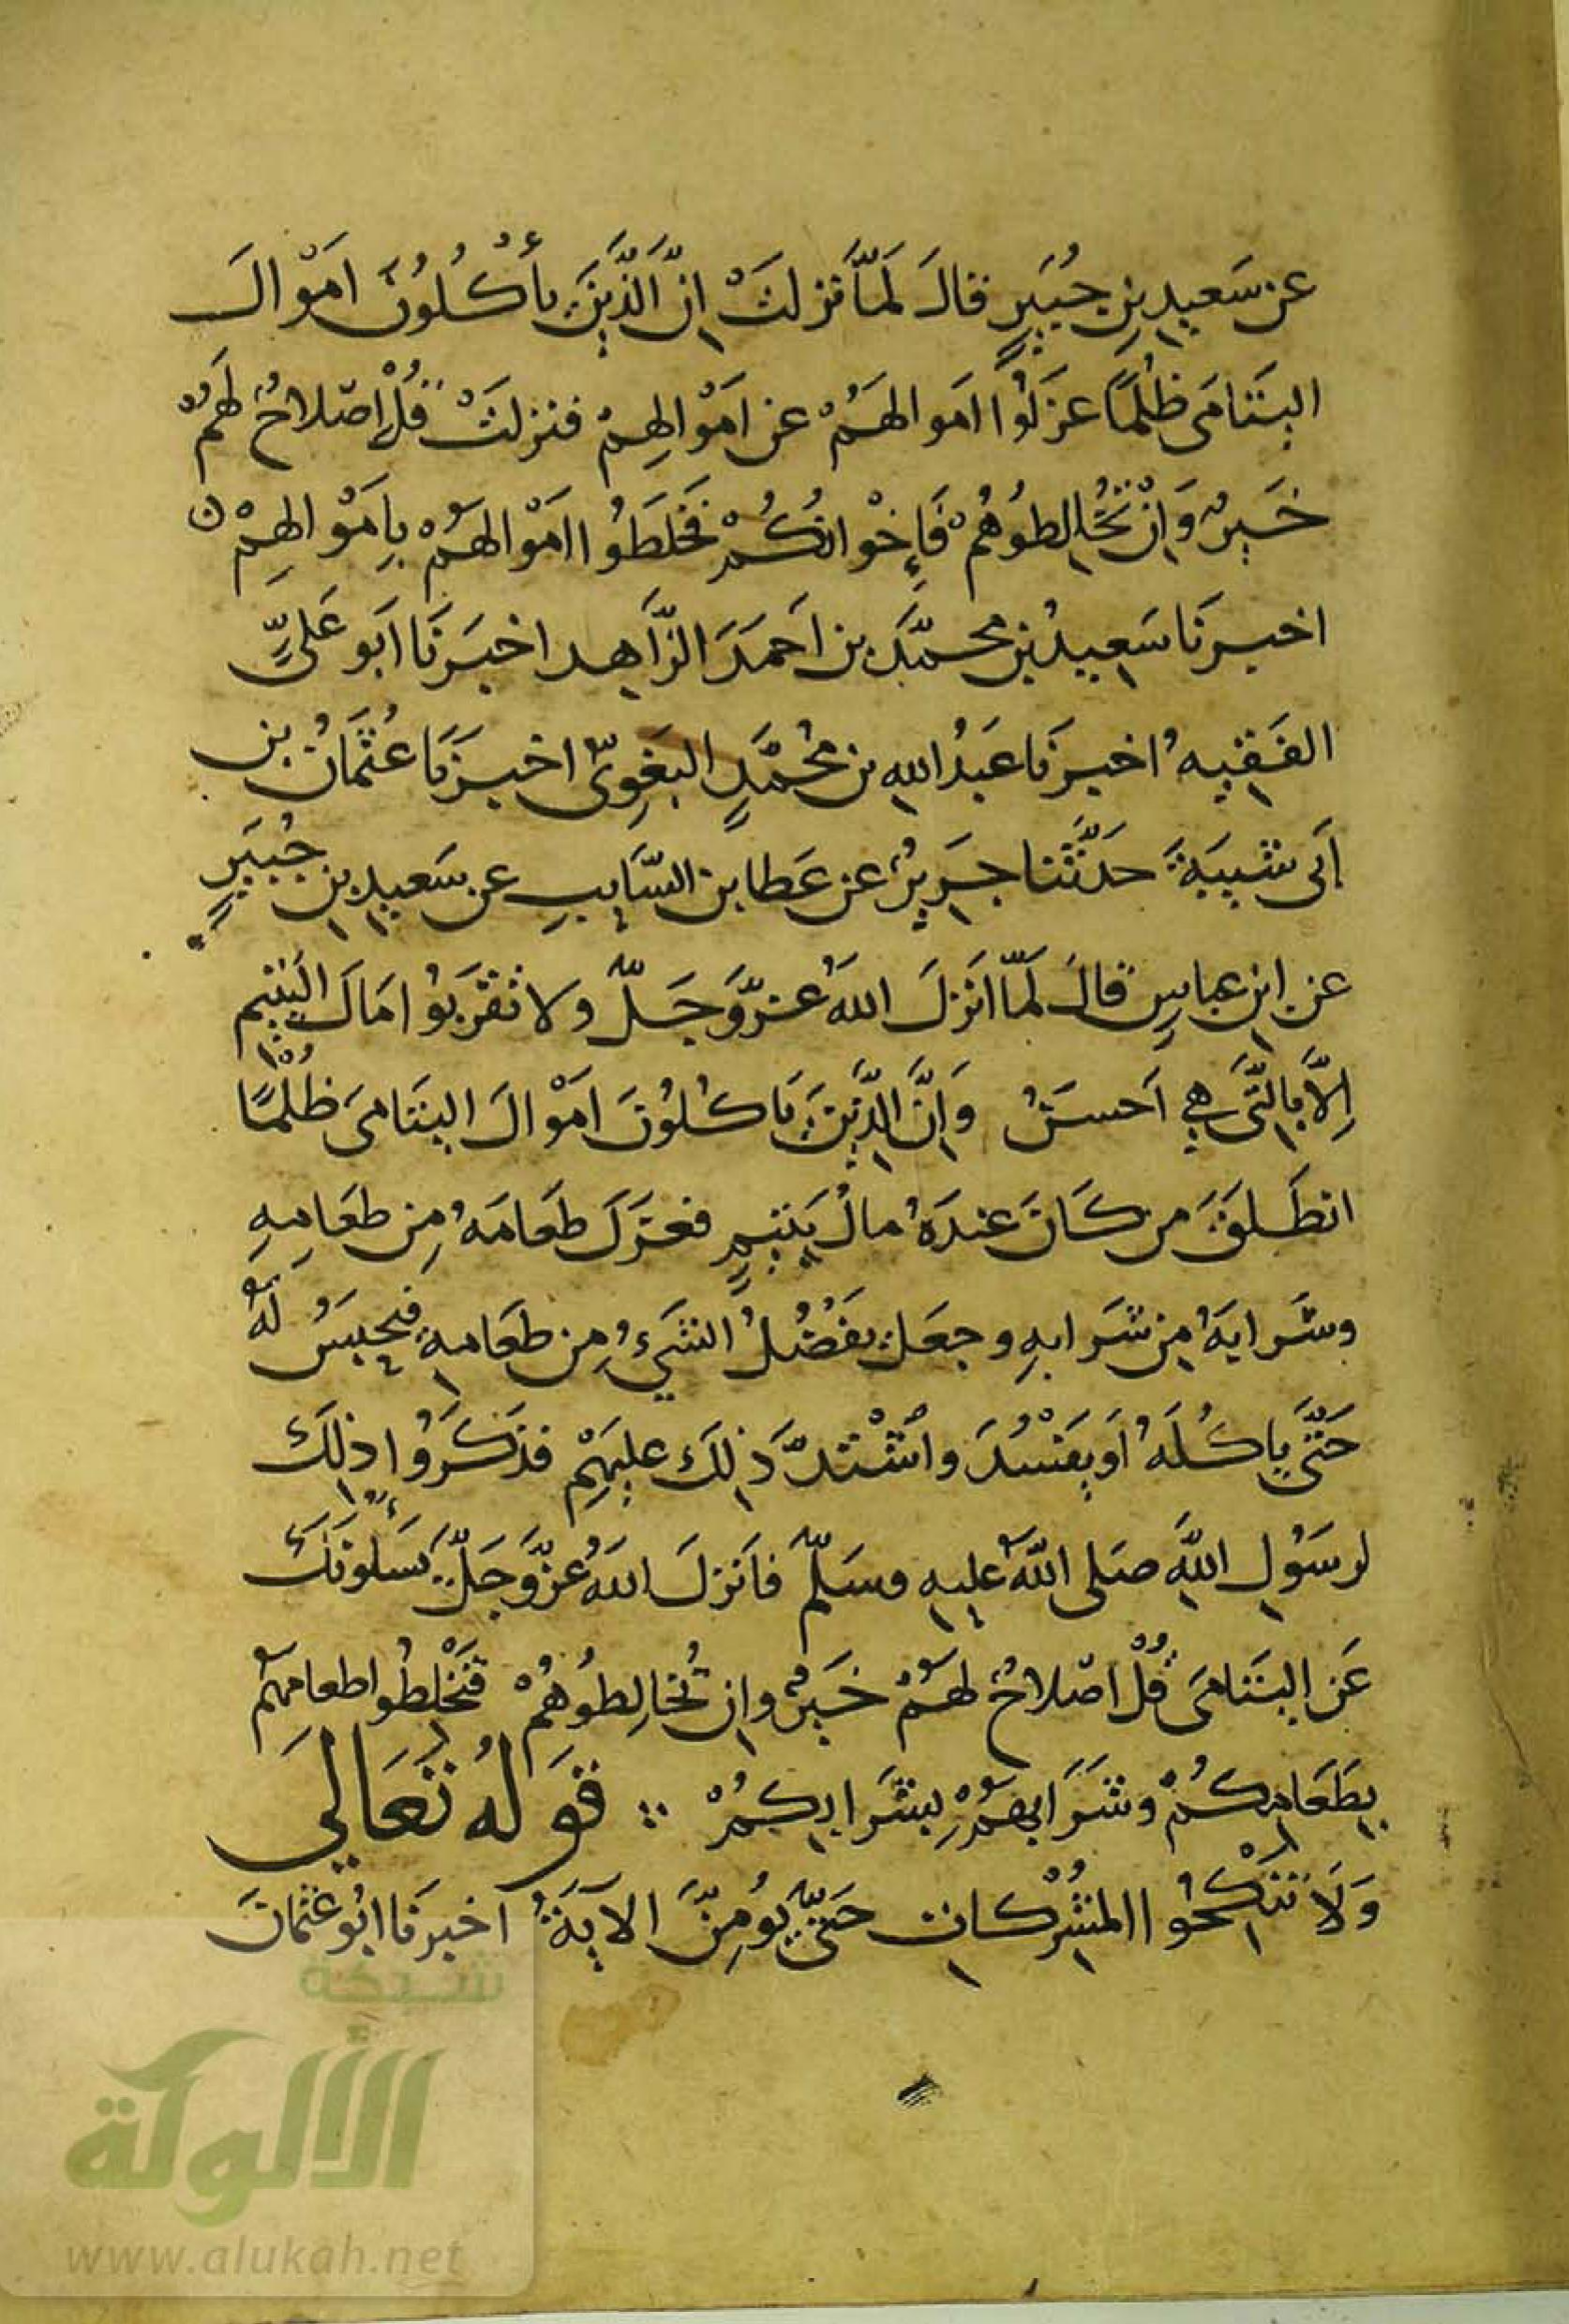 عن سَعيدِ بنِ جُبَيرٍ قالَ لَمَّا نزلتْ إنَّ الَّذِينَ يأكُلُونَ امَوْالَ
اليَتَامَى ظُلْمًا عزَلُوا اموالهَمُ عن امَوْالِهِمْ فنزلتْ قُلْ إصْلاحٌ لهَمُ
خَيرٌ وَانْ تُخُالِطوُهُمْ فَإِخْوانكُمْ فَخَلَطَوُا امَوْالهَمُ بِامَوْالهِمْ ن
اخبرنَا سَعِيدُ بن محمَّدَ بن احَمدَ الزَّاهِد اخبَرنَا ابَو عَلىٍّ
الفَقيهُ اخبرنَا عَبدُ اللهِ بن مُحمَّدٍ البَغَوِىّ اخبرَنَا عُثمَانُ بن
اَبى شيبَةَ حَدَّثَنا جَرِيرُ عن عَطا بن السَّايبِ عن سَعيدِ بنِ جُبَيرٍ
عن ابنِ عباسٍ قالَ لَمَّا انَزلَ اللهُ عزَّوَجَلَّ ولا تقرَبوُا مَالَ اليَتيِمِ
اِلاَّ بالَّتى هِي اَحسَنُ وَاِنَّ الذِّينَ يَاكُلوُنَ امَوْالَ اليَتَامىَ ظُلْمًا
انطَلقَ من كاَنَ عندَهُ مالُ يَتيمٍ فعَزَلَ طعَامَهُ مِن طعَامِهِ
وشَرابهَُ مِن شَرابهِ وجعَلَ يفَضُلُ الشَيءُ مِن طعَامهِ فيحُبسَُ لهَُ
حَتَّى ياكُلَهُ اَو يفَسُْدَ واشْتدَّ ذلِكَ عليهَمِْ فذكَرَوُا ذلِكَ
لرسَوُلِ اللهِ صَلى اللهُ عليهِ وسَلَّمَ فاَنَزلَ اللهُ عزَّوَجَلَّ يَسَلُونَكَ
عَن اليَتَامىَ قُلْ اصْلاحٌ لهَمُ خَيرٌ وانِ تُخالِطوُهُمْ فتَخْلِطُوا طعامَهمُ
بِطَعَامِكُمُْ وشَرَابهَمُْ بِشَرابِكمُْ قوَلهُ تَعَالىَ
وَلاَ تَنكْحِوُا المشُرْكاتِ حَتىَّ يُومِنَّ الآيةَُ اخبرنَا ابُو عثمانَ
شبكة
الألوكة
www.alukah.net